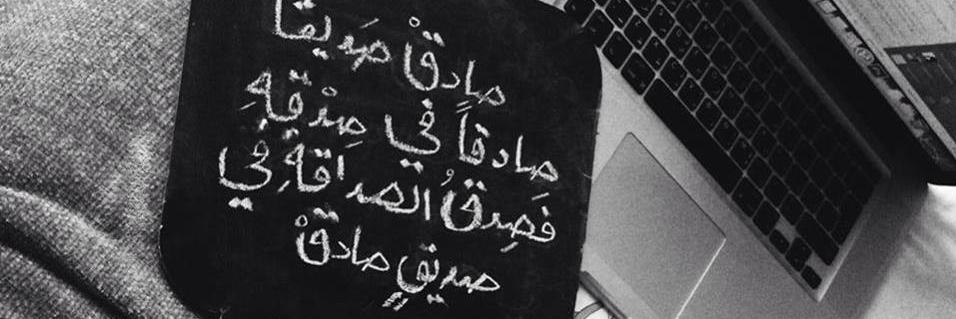 صادقْ صَديقاً
صَادقاً في صِدْقِهِ
فَصِدقُ الصداقةِ في
صديقٍ صادقْ